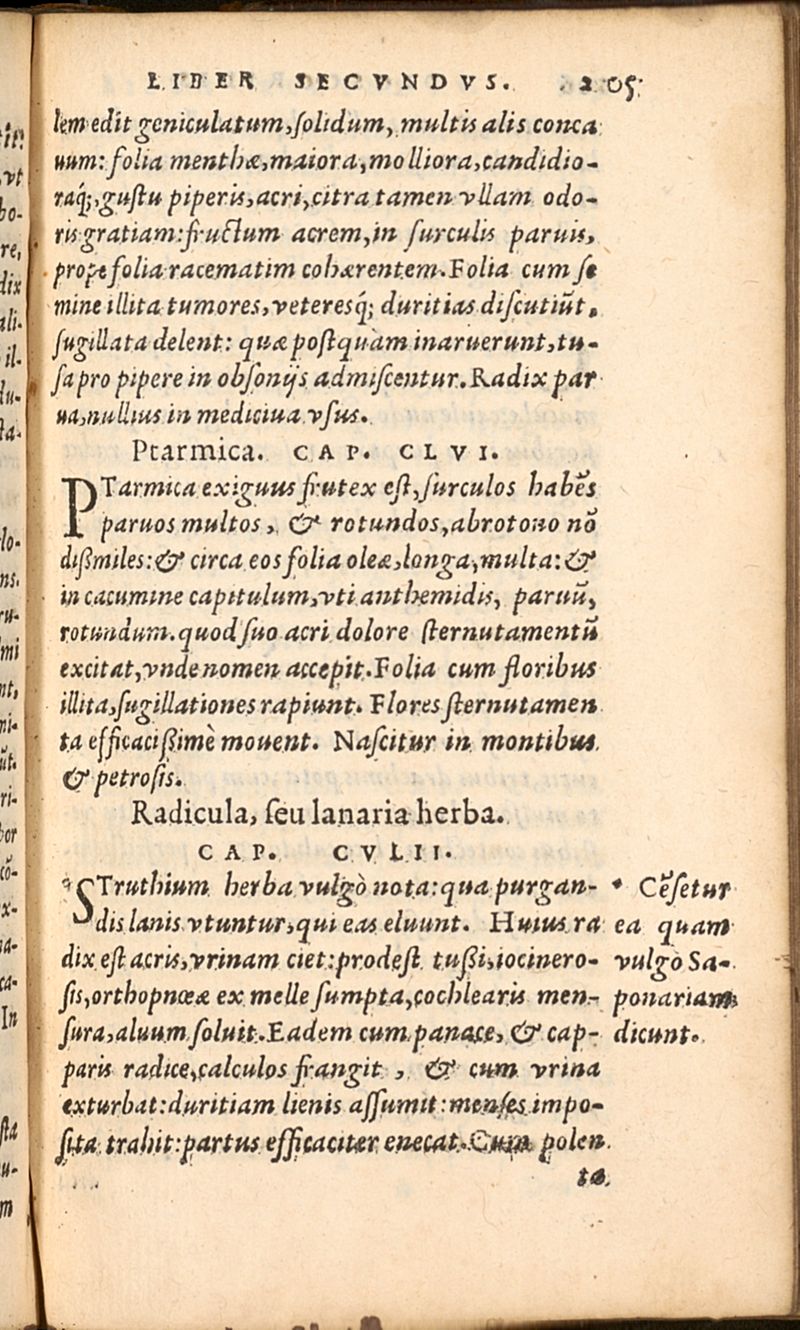 LIBER SECVNDVS. 205
lem edit geniculatum, ſolidum, multis alis conca
uum: folia menthæ, maiora, molliora, candidio-
raq́;, guſtu piperis, acri, citra tamen vllam odo-
ris gratiam: fructum acrem, in ſurculis paruis,
prope folia racematim cohærentem. Folia cum ſe
mine illita tumores, veteresq́; duritias diſcutiũt,
ſugillata delent: quæ poſtquàm inaruerunt, tu-
ſa pro pipere in obſonijs admiſcentur. Radix par
ua, nullius in mediciua vſus.
Ptarmica. CAP. CLVI.
PTarmica exiguus frutex eſt, ſurculos habẽs
paruos multos, & rotundos, abrotono nõ
dißmiles: & circa eos folia oleæ, longa, multa: &
in cacumine capitulum, vti anthemidis, paruũ,
rotundum. quod ſuo acri dolore ſternutamentũ
excitat, vnde nomen accepit. Folia cum floribus
illita, ſugillationes rapiunt. Flores ſternutamen
ta efficacißimè mouent. Naſcitur in montibus
& petroſis.
Radicula, ſeu lanaria herba.
CAP. CVLII.
* STruthium herba vulgò nota: qua purgan-
dis lanis vtuntur, qui eas eluunt. Huius ra
dix eſt acris, vrinam ciet: prodeſt tußi, iocinero-
ſis, orthopnœæ ex melle ſumpta, cochlearis men-
ſura, aluum ſoluit. Eadem cum panace, & cap-
paris radice, calculos frangit, & cum vrina
exturbat: duritiam lienis aſſumit: menſes impo-
ſita trahit: partus efficaciter enecat. Cum polen
ta
* Cẽſetur
ea quam
vulgò Sa-
ponariam
dicunt.